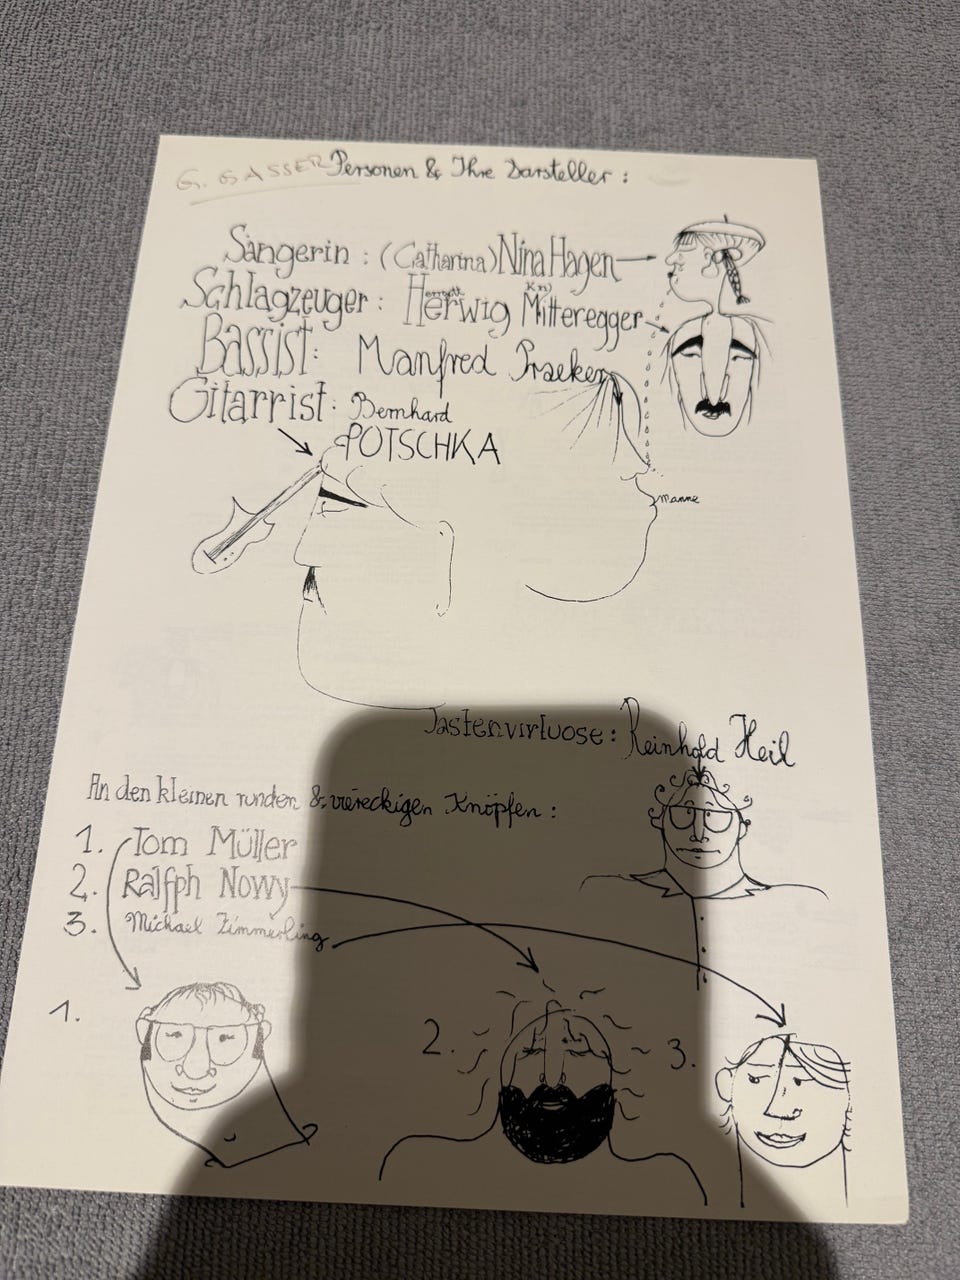 G. GASSER
Personen & Ihre Darsteller :
Sängerin : (Catharina) Nina Hagen
Schlagzeuger : Herwig Mitteregger
Bassist : Manfred Praeker
Gitarrist : Bernhard
POTSCHKA
manne
Tastenvirtuose : Reinhold Heil
An den kleinen runden & viereckigen Knöpfen :
1. Tom Müller
2. Ralfph Nowy
3. Michael Zimmerling
1.
2.
3.